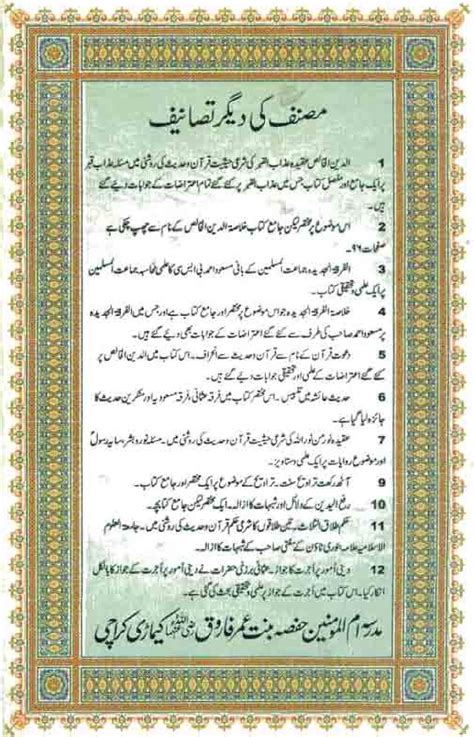 مصنف کی دیگر تصانیف
1 الدین الخالص عقیدہ عذاب القبر کی شرعی حیثیت قرآن وحدیث کی روشنی میں مسئلہ عذاب قبر
پر ایک جامع اور مفصل کتاب جس میں عذاب القبر پر کئے گئے تمام اعتراضات کے جوابات دیئے گئے
ہیں۔
2 اس موضوع پر مختصر لیکن جامع کتاب خلاصہ الدین الخالص کے نام سے چھپ چکی ہے
صفحات ۹۶۔
3 الفرقۃ الجدیدہ جماعت المسلمین کے بانی مسعود احمد بی ایس سی کا علمی محاسبہ جماعت المسلمین
پر ایک علمی و تحقیقی کتاب۔
4 خلاصۃ الفرقۃ الجدیدہ جو اس موضوع پر مختصر اور جامع کتاب ہے اور جس میں الفرقۃ الجدیدہ
پر مسعود احمد صاحب کی طرف سے کئے گئے اعتراضات کے جوابات بھی دیئے گئے ہیں۔
5 دعوت قرآن کے نام سے قرآن وحدیث سے انحراف۔ اس کتاب میں الدین الخالص پر
کئے گئے اعتراضات کے علمی اور تحقیقی جوابات دیئے گئے ہیں۔
6 حدیث عائشہ میں تلبیس۔ اس مختصر کتاب میں فرقہ عثمانی، فرقہ مسعودیہ اور منکرین حدیث کا
جائزہ لیا گیا ہے۔
7 عقیدہ نور من نور اللہ کی شرعی حیثیت قرآن وحدیث کی روشنی میں۔ مسئلہ نور و بشر، سایہ رسول
اور موضوع روایات پر ایک علمی دستاویز۔
9 آٹھ رکعت تراویح سنت۔ تراویح کے موضوع پر ایک مختصر اور جامع کتاب۔
10 رفع الیدین کے دلائل اور شبہات کا ازالہ۔ ایک مختصر لیکن جامع کتابچہ۔
11 حکم طلاق الثلاث۔ تین طلاقوں کا شرعی حکم قرآن وحدیث کی روشنی میں۔ جامعۃ العلوم
الاسلامیہ علامہ بنوری ٹاؤن کے مفتی صاحب کے شبہات کا ازالہ۔
12 دینی اُمور پر اُجرت کا جواز۔ عثمانی برزخی حضرات نے دینی اُمور پر اُجرت کے جواز کا بالکل
انکار کیا۔ اس کتاب میں اُجرت کے جواز پر علمی و تحقیقی بحث کی گئی ہے۔
مدرسہ اُم المومنین حفصہ بنت عمر فاروق رضی اللہ عنہما کیماڑی کراچی